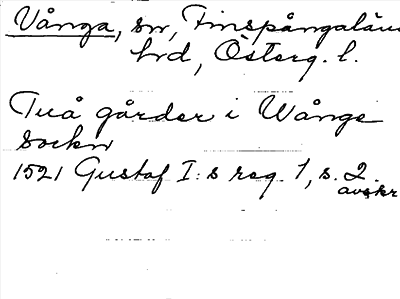 Vånga, sn, Finspångalän
hrd, Österg. l.
Tuå gårder i Wånge
sockn
1521 Gustaf I:s reg. 1, s. 2.
avskr